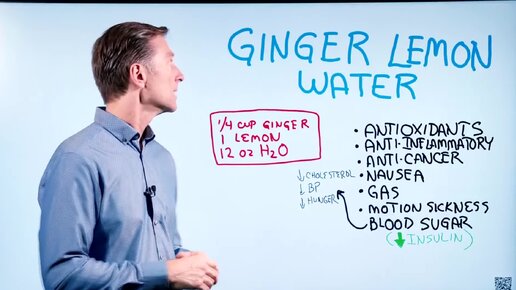 GINGER LEMON
WATER
1/4 CUP GINGER
1 LEMON
12 OZ H2O
• ANTIOXIDANTS
• ANTI-INFLAMMATORY
• ANTI-CANCER
• NAUSEA
• GAS
• MOTION SICKNESS
• BLOOD SUGAR
(↓ INSULIN)
↓ CHOLESTEROL
↓ BP
↓ HUNGER